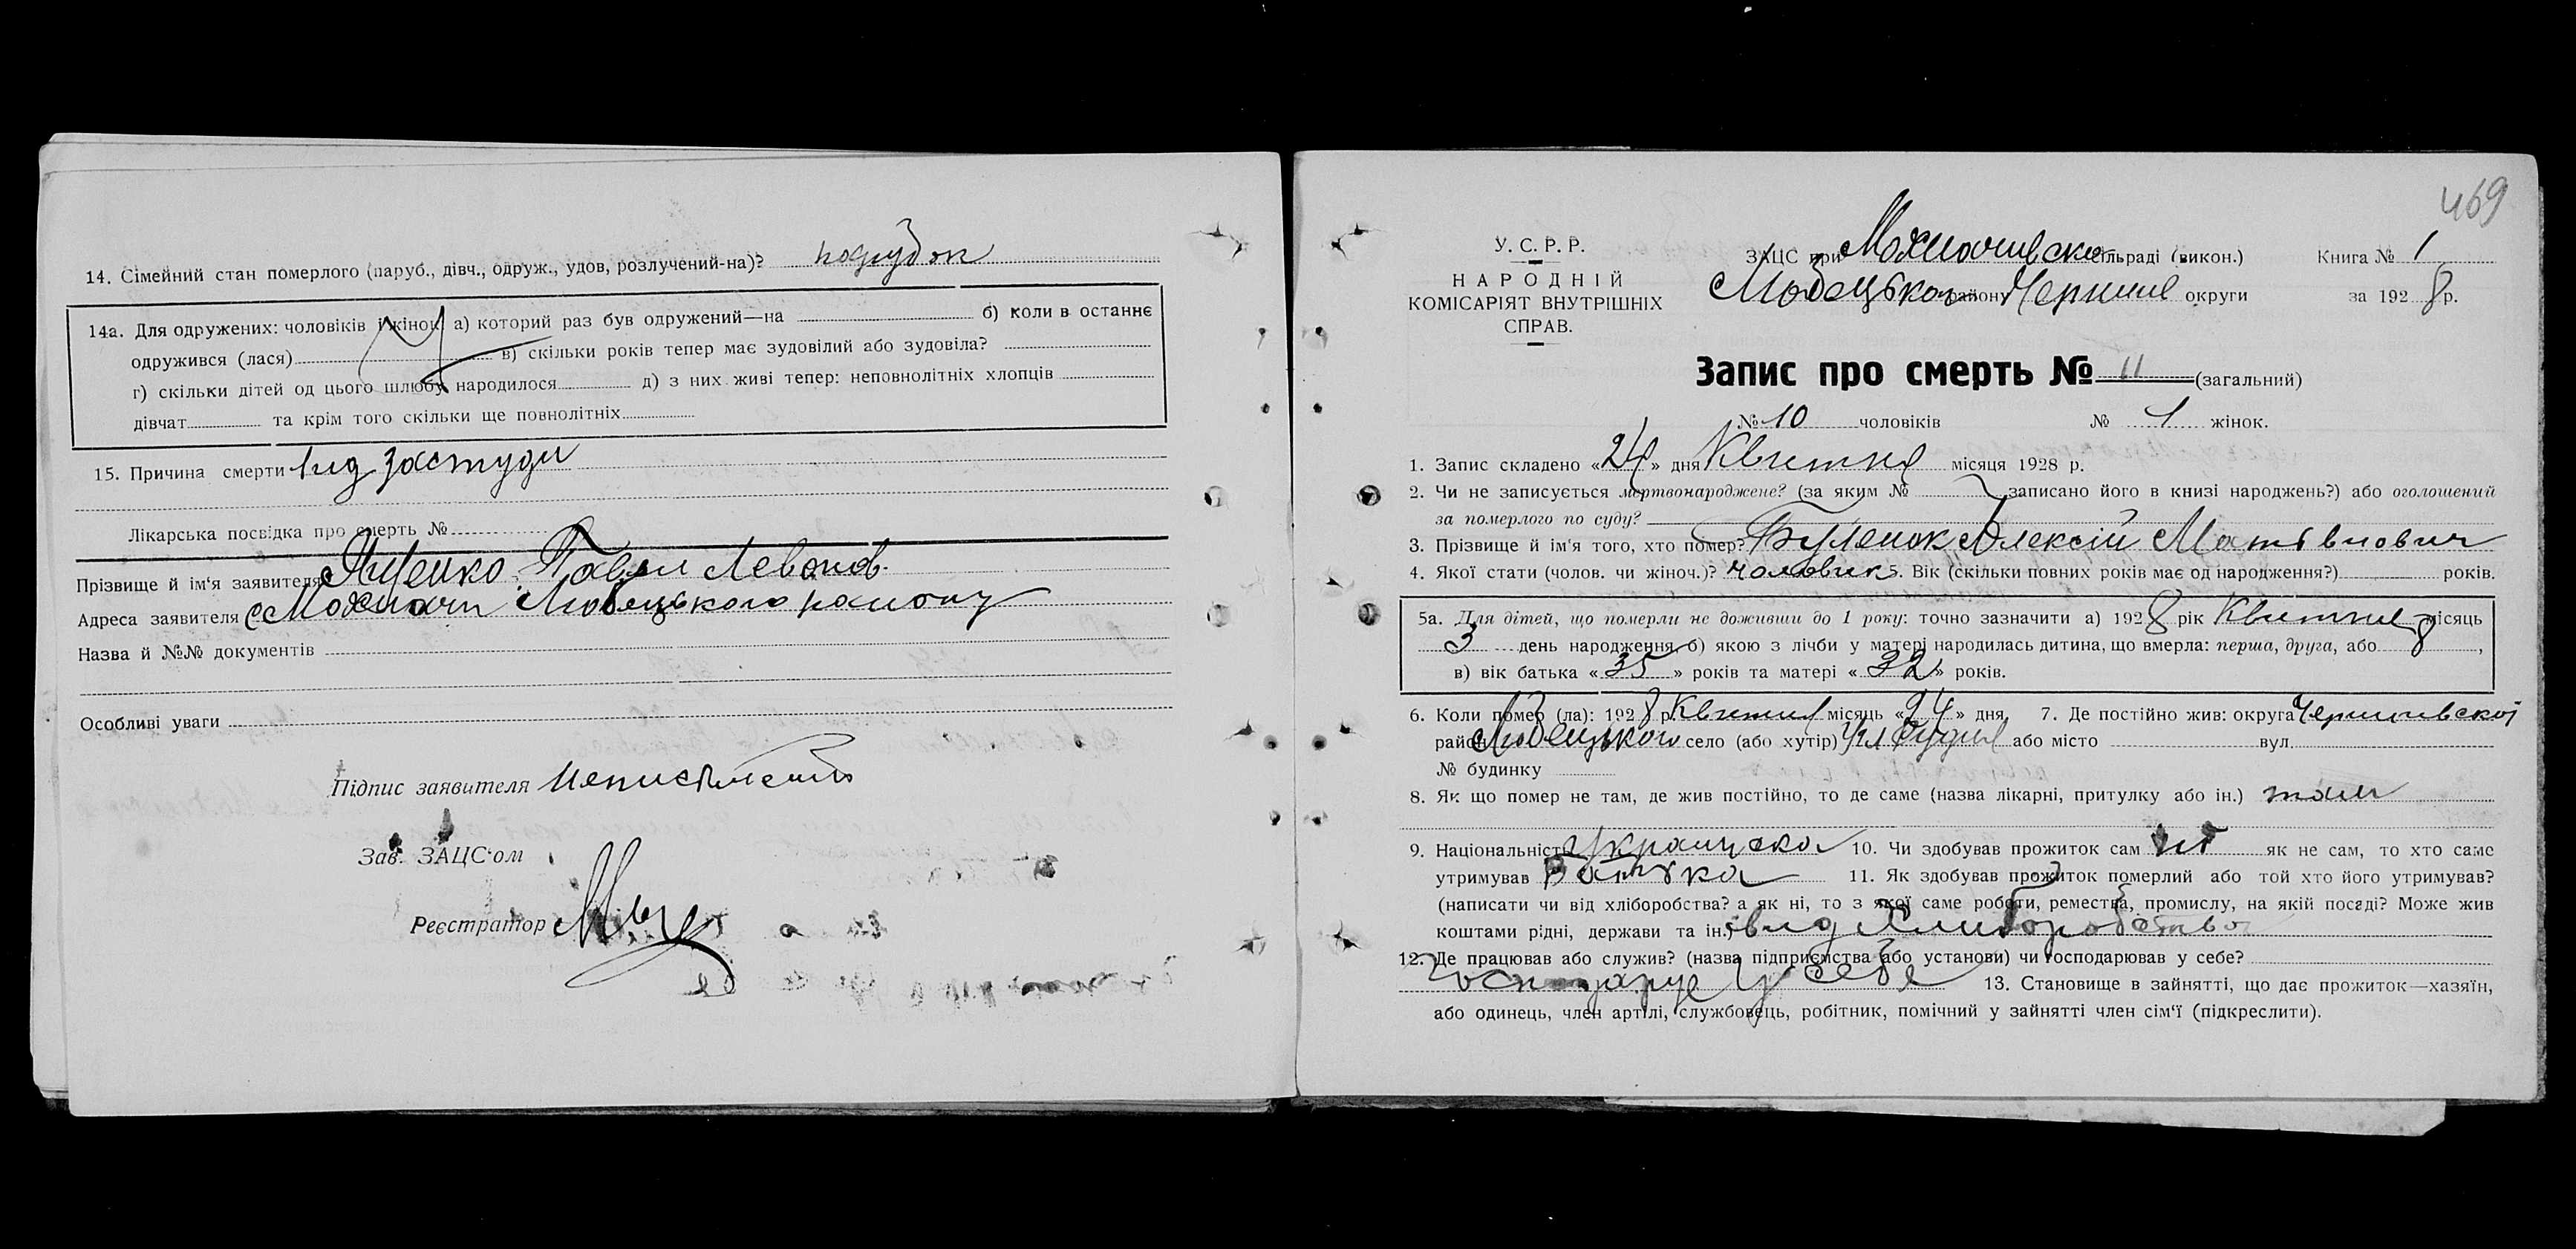 14. Сімейний стан померлого (паруб., дівч., одруж., удов, розлучений-на)? парубок
14а. Для одружених: чоловіків і жінок а) которий раз був одружений—на б) коли в останнє
одружився (лася) в) скільки років тепер має зудовілий або зудовіла?
г) скільки дітей од цього шлюбу народилося д) з них живі тепер: неповнолітніх хлопців
дівчат та крім того скільки ще повнолітніх
15. Причина смерти від застуди
Лікарська посвідка про смерть №
Прізвище й ім'я заявителя Павел Левонов.
Адреса заявителя с Мохначи Любецького району
Назва й №№ документів
Особливі уваги
Підпис заявителя
Зав. ЗАЦС'ом
Реєстратор
469
У. С. Р. Р.
НАРОДНІЙ
КОМІСАРІЯТ ВНУТРІШНІХ
СПРАВ.
ЗАЦС при сільраді (викон.) Книга № 1
Любецького району Черниг округи за 1928 р.
Запис про смерть № 11 (загальний)
№ 10 чоловіків № 1 жінок.
1. Запис складено «24» дня Квитня місяця 1928 р.
2. Чи не записується мертвонароджене? (за яким № записано його в книзі народжень?) або оголошений
за померлого по суду?
3. Прізвище й ім'я того, хто помер? Буленок Алексій Матвінович
4. Якої стати (чолов. чи жіноч.)? чоловик 5. Вік (скільки повних років має од народження?) років.
5а. Для дітей, що померли не доживши до 1 року: точно зазначити а) 1928 рік Квитня місяць
3 день народження, б) якою з лічби у матері народилась дитина, що вмерла: перша, друга, або 8,
в) вік батька «35» років та матері «32» років.
6. Коли помер (ла): 1928 р. Квитня місяць «24» дня 7. Де постійно жив: округа
район Любецького село (або хутір) або місто вул.
№ будинку
8. Як що помер не там, де жив постійно, то де саме (назва лікарні, притулку або ін.) там
9. Національність 10. Чи здобував прожиток сам ні як не сам, то хто саме
утримував Батька 11. Як здобував прожиток померлий або той хто його утримував?
(написати чи від хліборобства? а як ні, то з якої саме роботи, ремества, промислу, на якій посаді? Може жив
коштами рідні, держави та ін.) вид хлиборобства
12. Де працював або служив? (назва підприємства або установи) чи господарював у себе?
господарує у себе 13. Становище в зайнятті, що дає прожиток—хазяїн,
або одинець, член артілі, службовець, робітник, помічний у зайнятті член сім'ї (підкреслити).